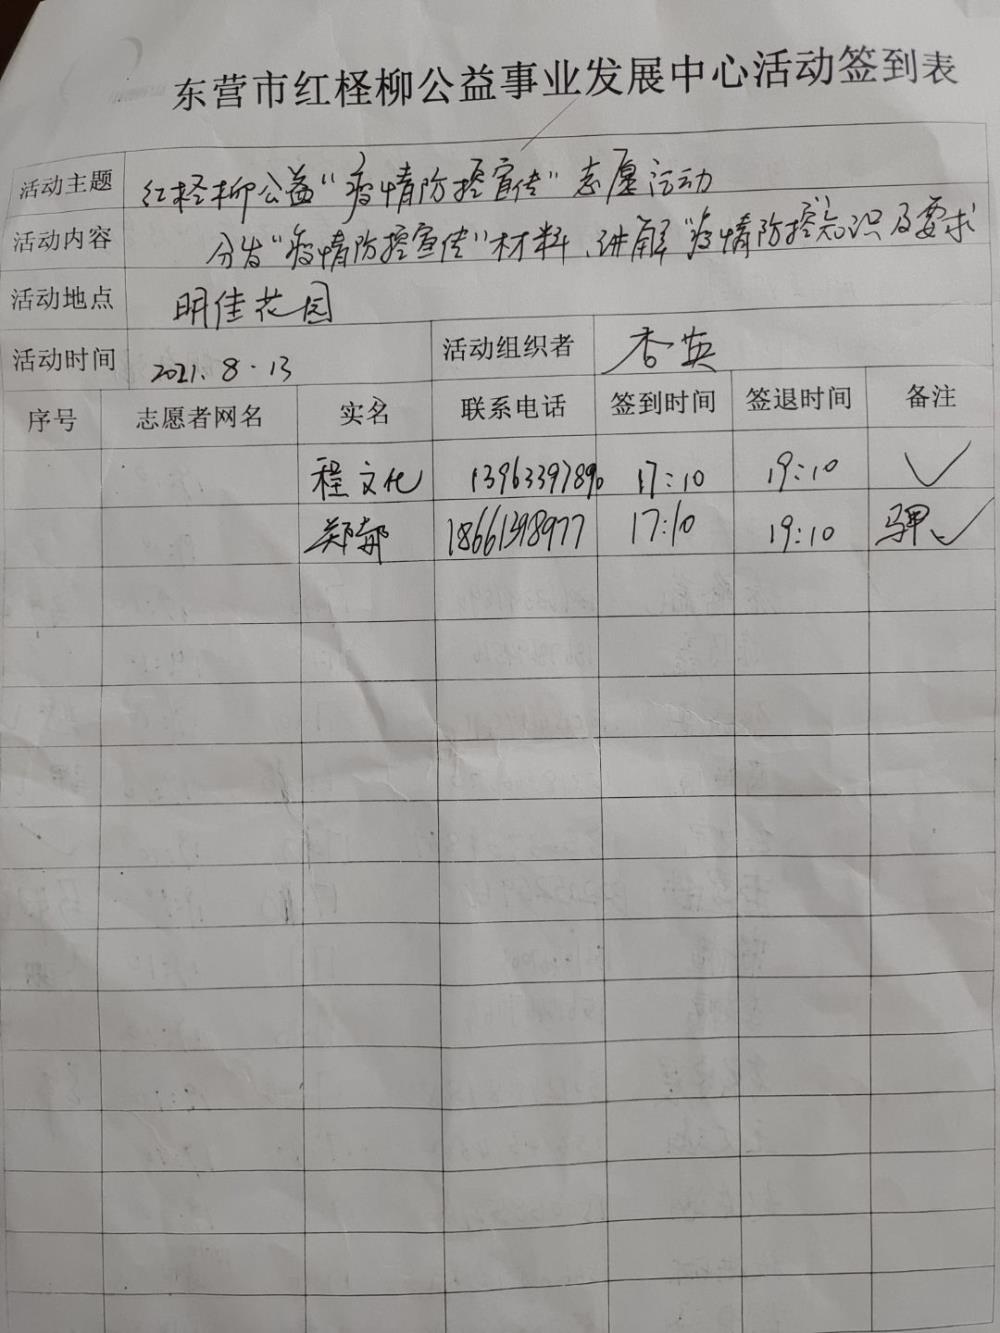 东营市红柽柳公益事业发展中心活动签到表
活动主题 红柽柳公益“疫情防控宣传”志愿活动
活动内容 分发“疫情防控宣传”材料、讲解“疫情防控”知识及要求
活动地点 明佳花园
活动时间 2021.8.13 活动组织者 杏英
序号 志愿者网名 实名 联系电话 签到时间 签退时间 备注
程文化 13963397890 17:10 19:10 ✓
郑 18661398977 17:10 19:10 ✓